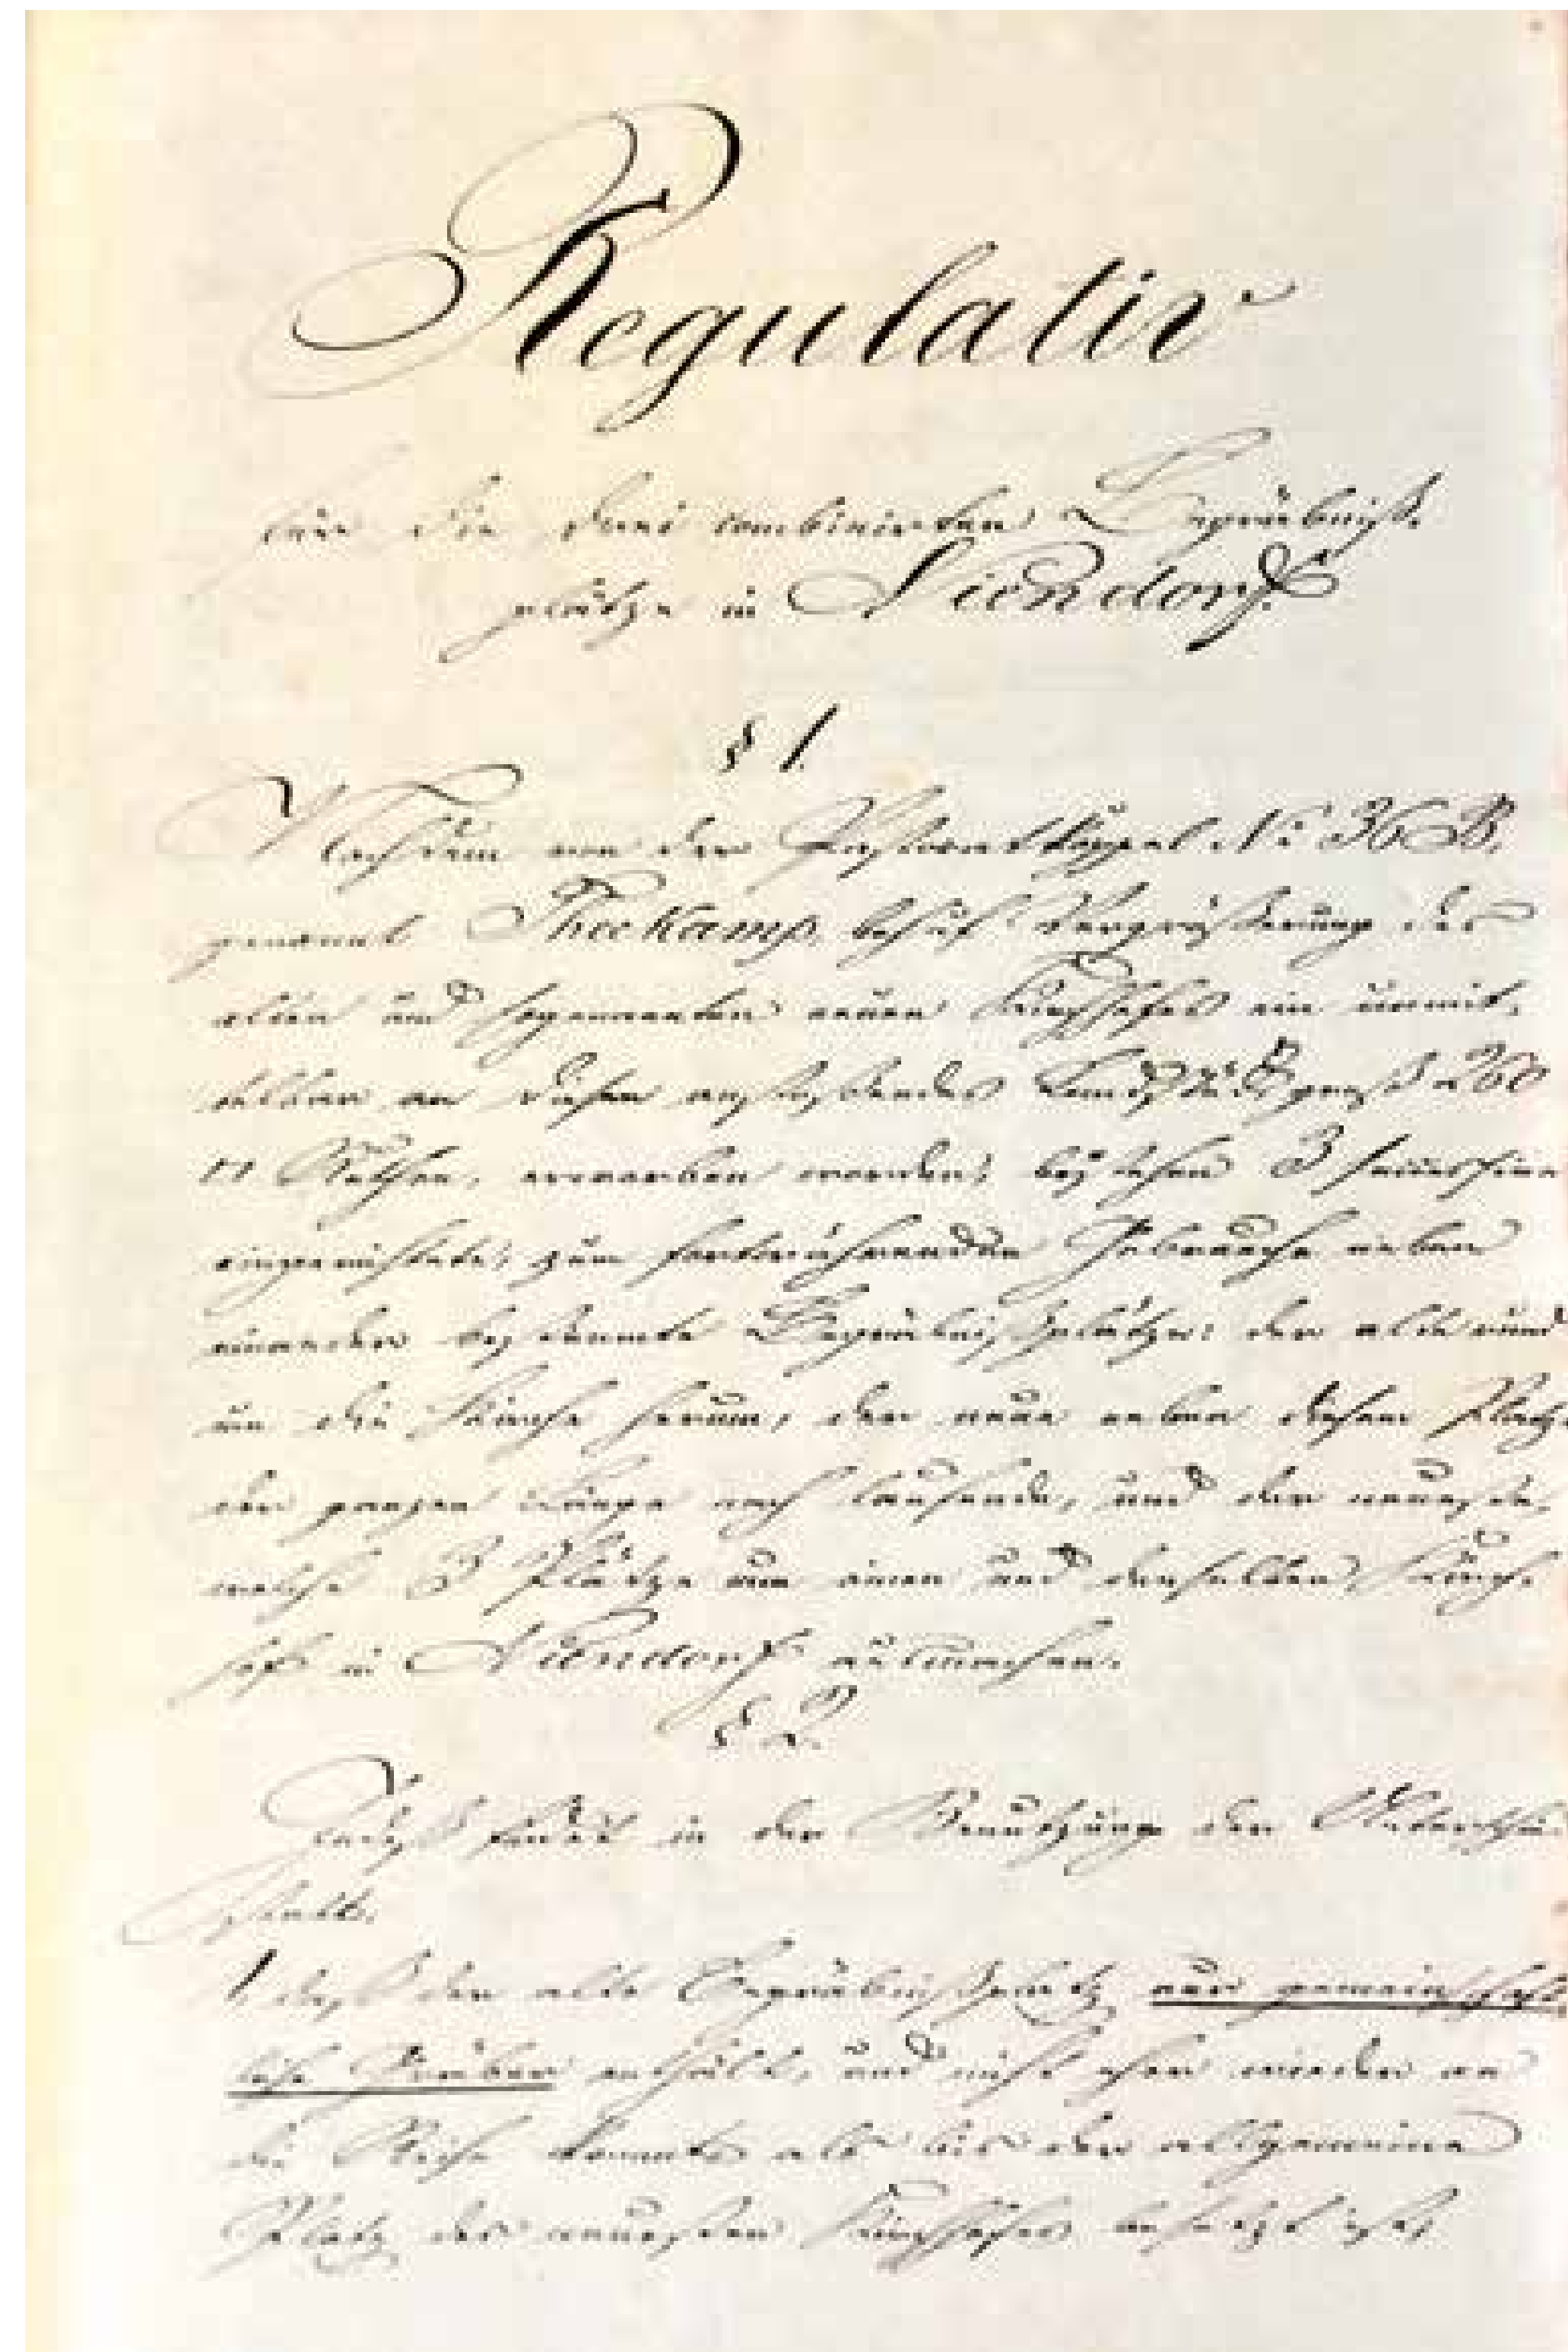 Regulativ
für die drei combinirten Begräbniß-
plätze in Niendorf.
§ 1.
Nachdem von der Pastoratkoppel No 36 B,
genannt Theekamp, behuf Vergrößerung des
alten und sogenannten neuen Kirchhofes ein unmit-
telbar an diesen anstoßendes Landstück groß 260
□ Ruthen, erworben worden; bestehen 3
eingerichtete, zum fortwährenden Gebrauche neben
einander bestimmte Begräbnißplätze: der alte rund
um die Kirche herum, der neue neben diesem Platz
der ganzen Länge nach laufende, und der neueste,
welche 3 Plätze nun einen und denselben Kirch-
hof in Niendorf ausmachen.
§ 2.
Indeß findet in der Benutzung der
statt,
1, daß der alte Begräbnißplatz nur gemeinschaft
liche Gräber enthält, und nicht eher wieder an
die Reihe kommt, als bis der allgemeine
Platz des neuesten Kirchhofes besetzt ist,